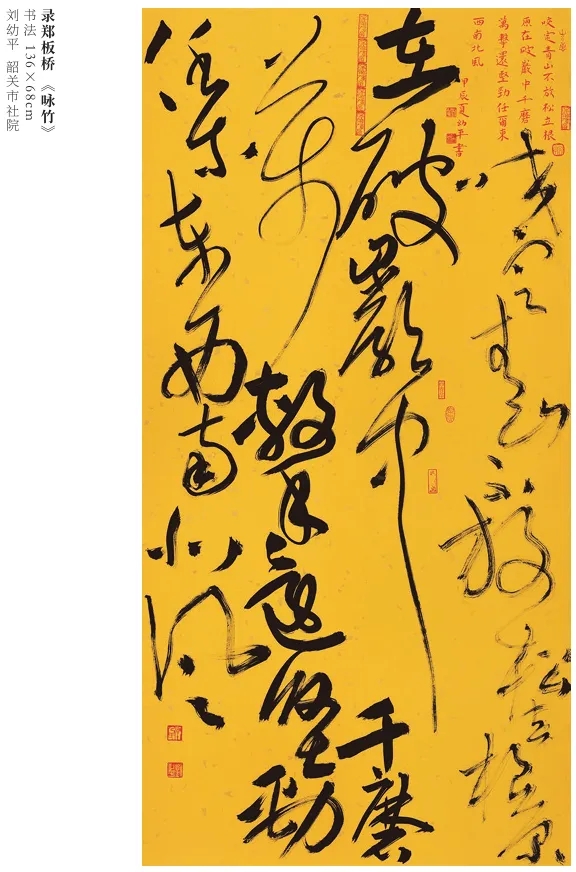 录郑板桥 《咏竹》
书法 136×68cm
刘幼平 韶关市社院
咬定青山不放松立根
原在破巖中千磨
萬擊還堅勁任爾東
西南北風
甲辰夏幼平書
咬定青山不放松立根原
在破巖中千磨
万擊還堅勁
任尔东西南北风